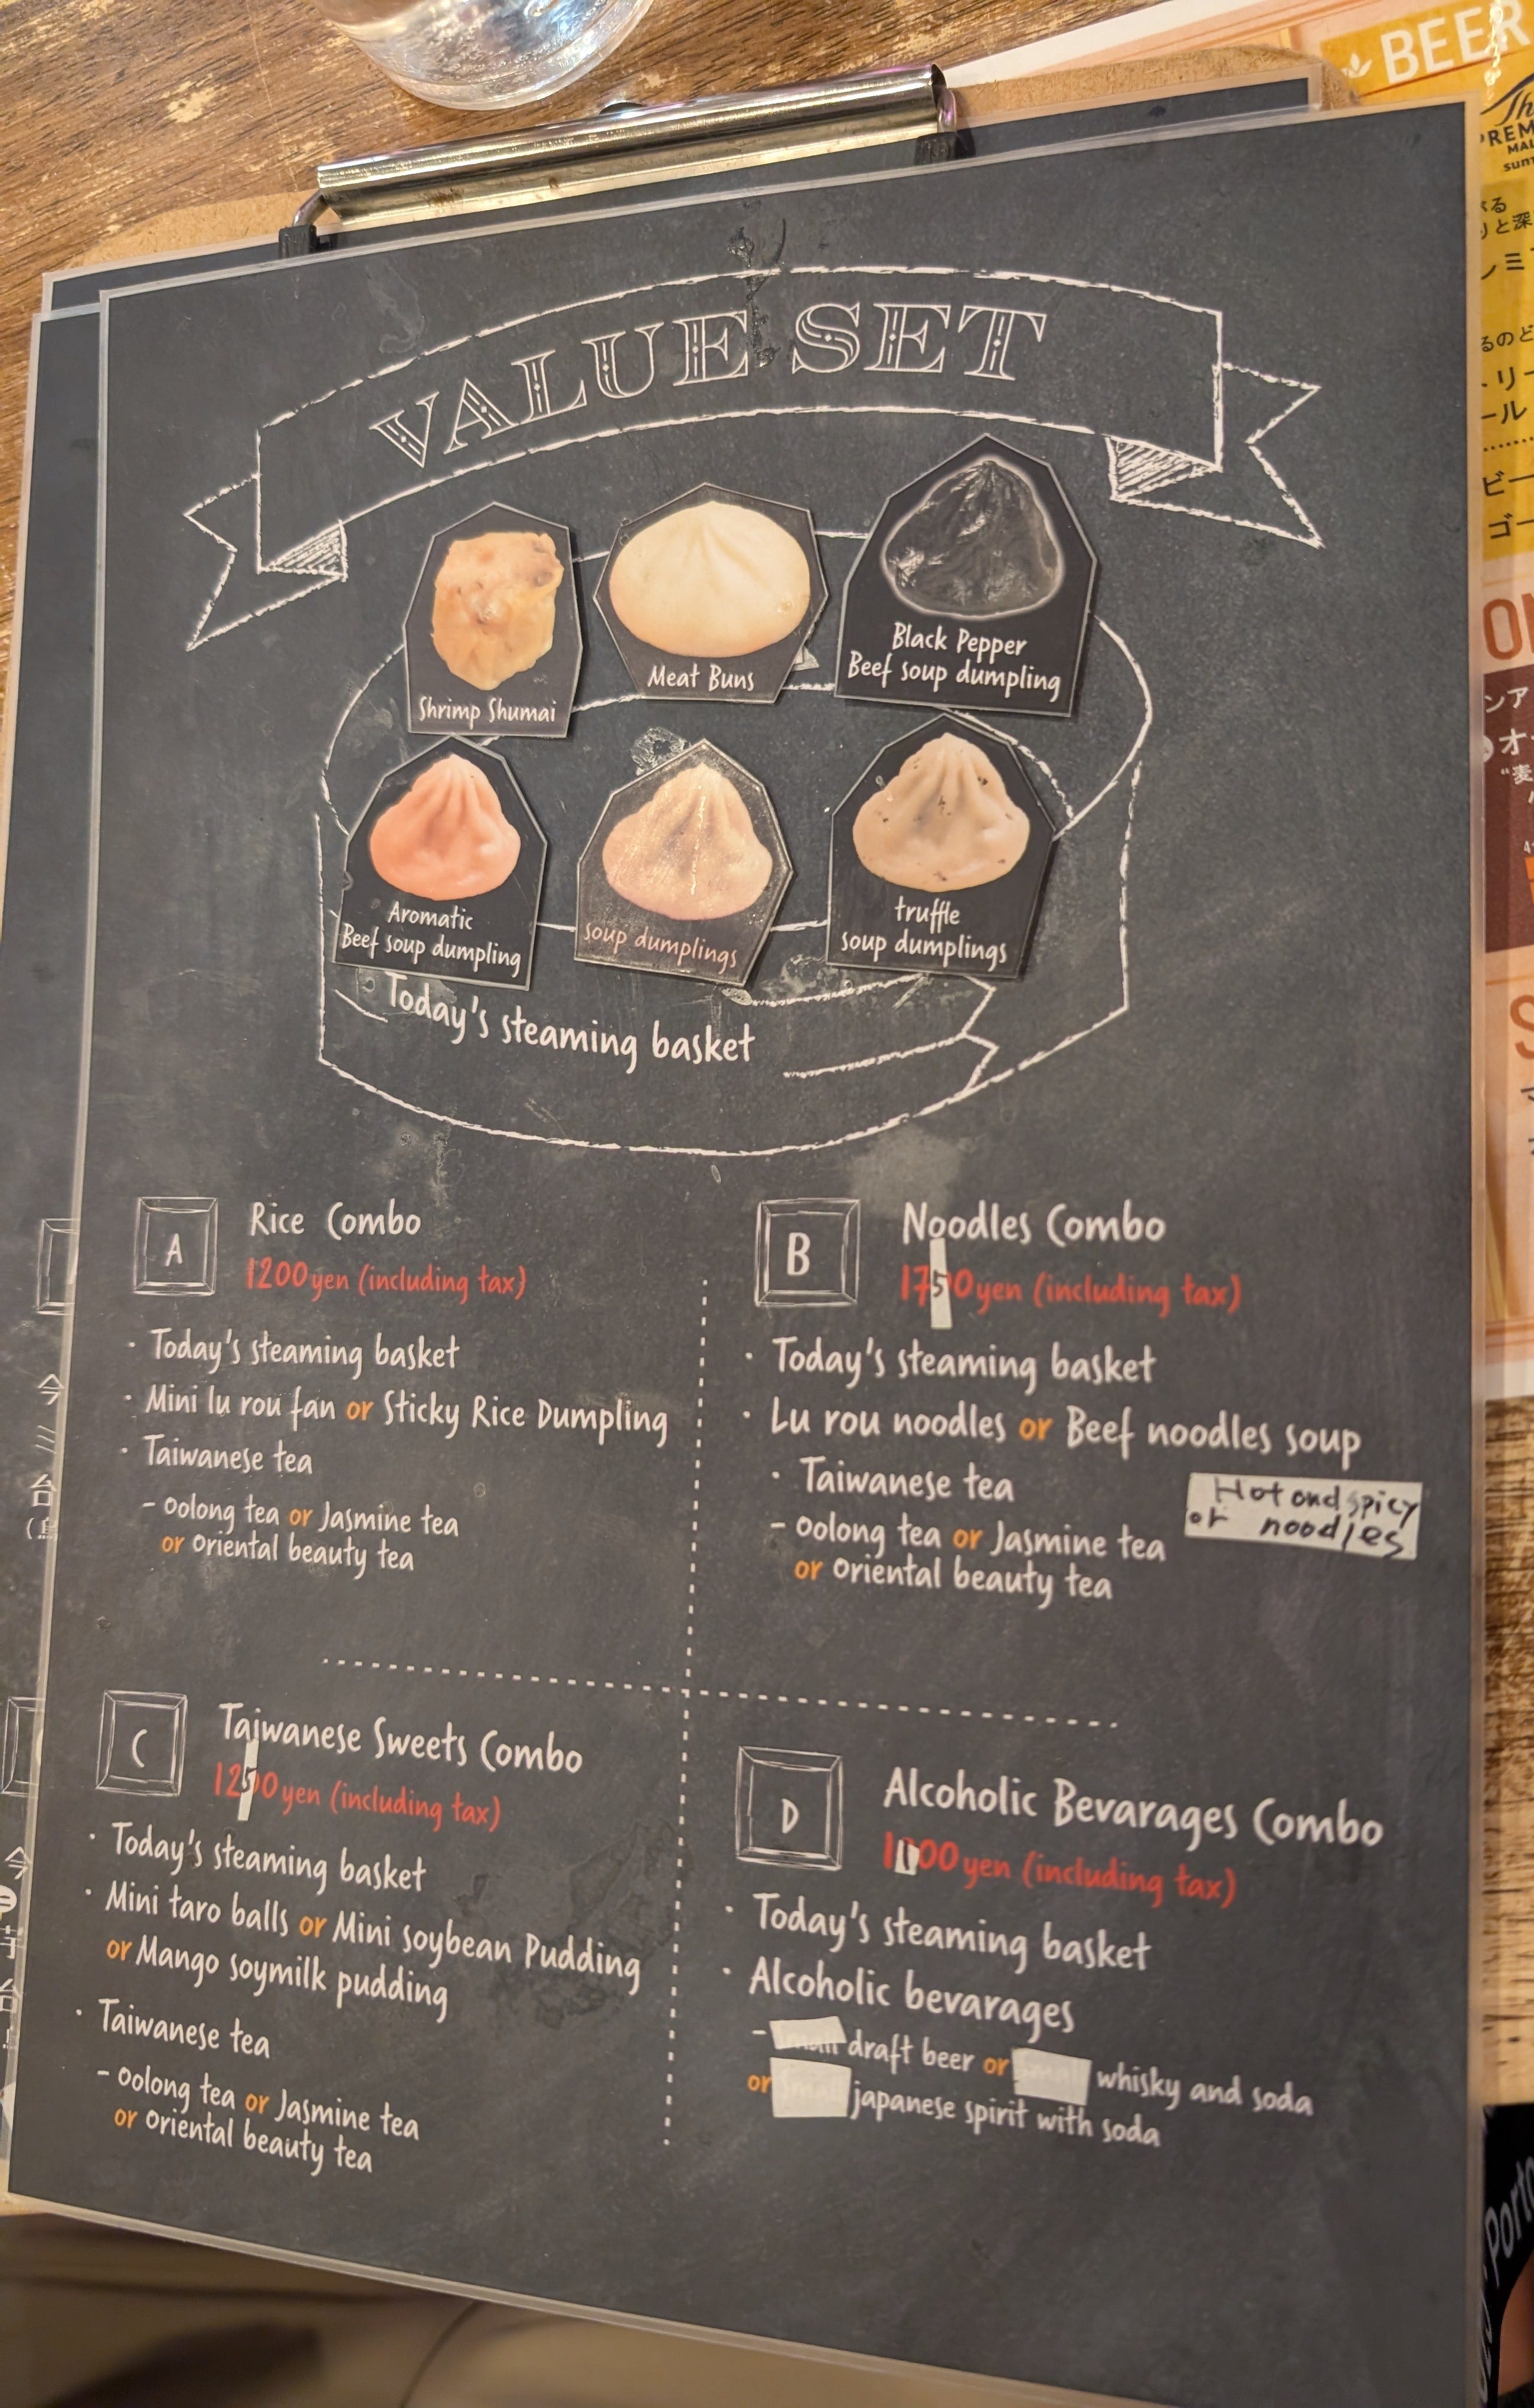 BEER
The
PREM
MAL
sunt
VALUE SET
Shrimp Shumai
Meat Buns
Black Pepper
Beef soup dumpling
Aromatic
Beef soup dumpling
soup dumplings
truffle
soup dumplings
Today's steaming basket
A
Rice Combo
1200yen (including tax)
・Today's steaming basket
・Mini lu rou fan or Sticky Rice Dumpling
・Taiwanese tea
- oolong tea or Jasmine tea
or oriental beauty tea
B
Noodles Combo
1750yen (including tax)
・Today's steaming basket
・Lu rou noodles or Beef noodles soup
or Hot and spicy
noodles
・Taiwanese tea
- oolong tea or Jasmine tea
or oriental beauty tea
C
Taiwanese Sweets Combo
1250yen (including tax)
・Today's steaming basket
・Mini taro balls or Mini soybean Pudding
or Mango soymilk pudding
・Taiwanese tea
- oolong tea or Jasmine tea
or oriental beauty tea
D
Alcoholic Bevarages Combo
1100yen (including tax)
・Today's steaming basket
・Alcoholic bevarages
- small draft beer or small whisky and soda
or small japanese spirit with soda